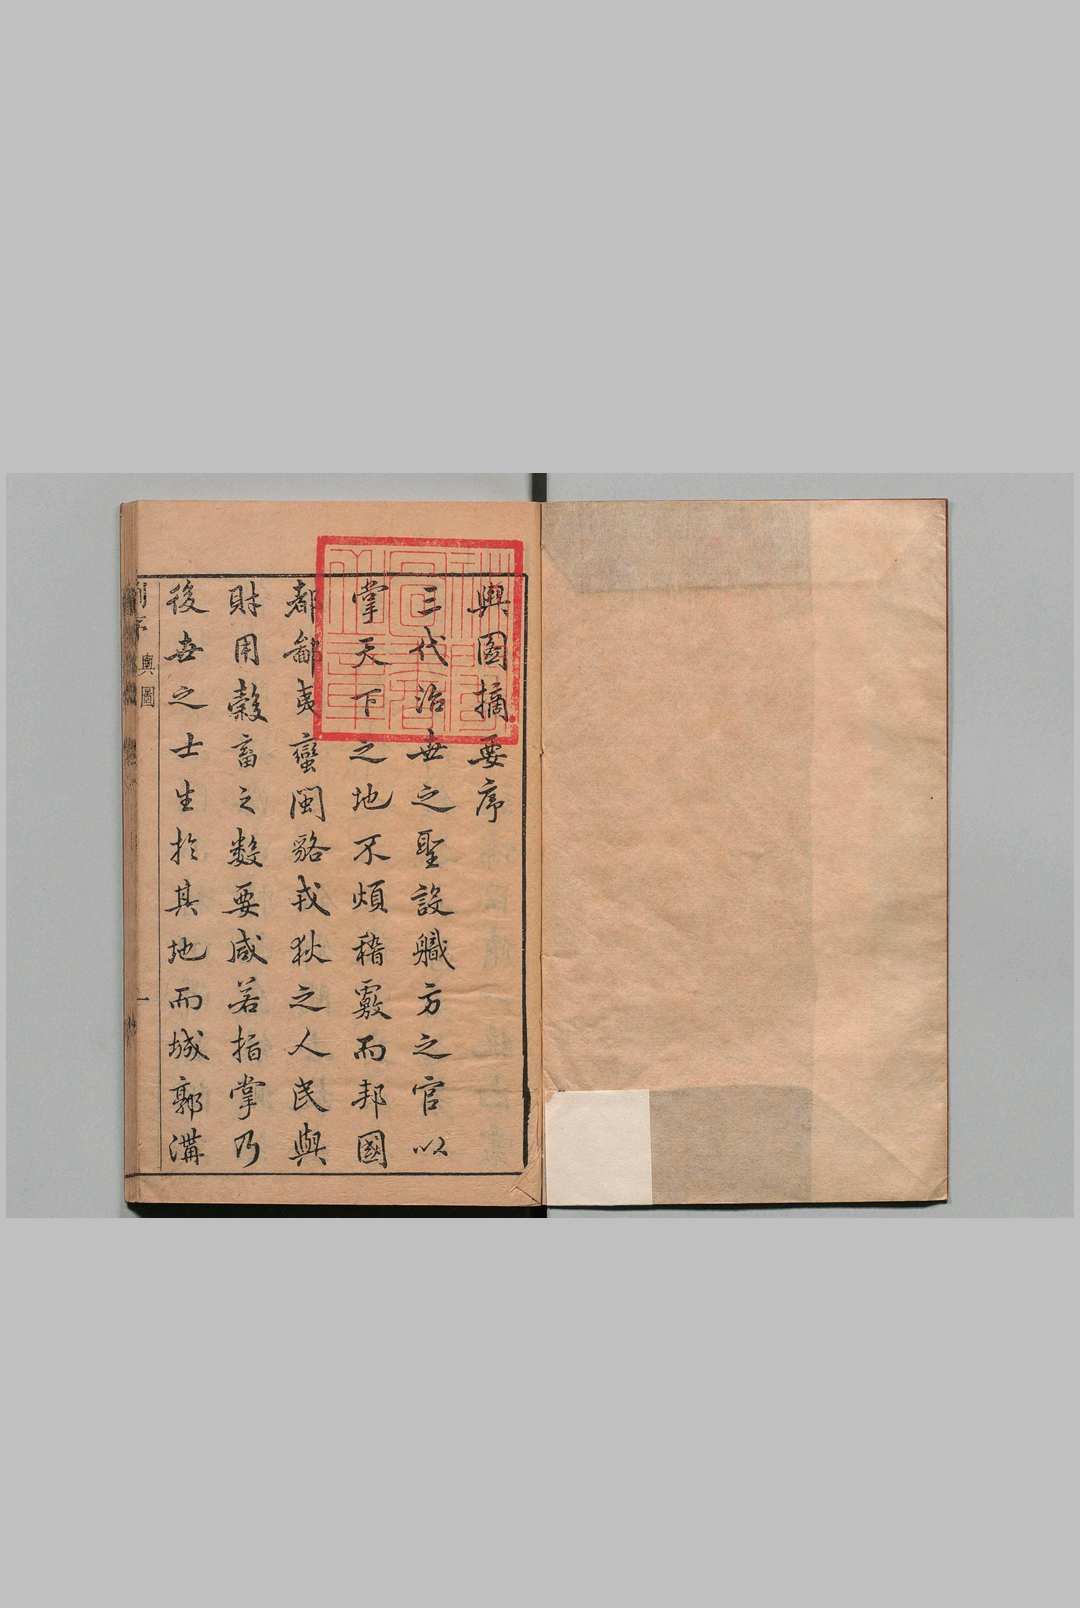 輿圖摘要序
三代治世之聖設職方之官以
掌天下之地不煩稽覈而邦國
都鄙夷蠻閩貉戎狄之人民與
財用穀畜之數要咸若指掌乃
後世之士生於其地而城郭溝
輿圖
一